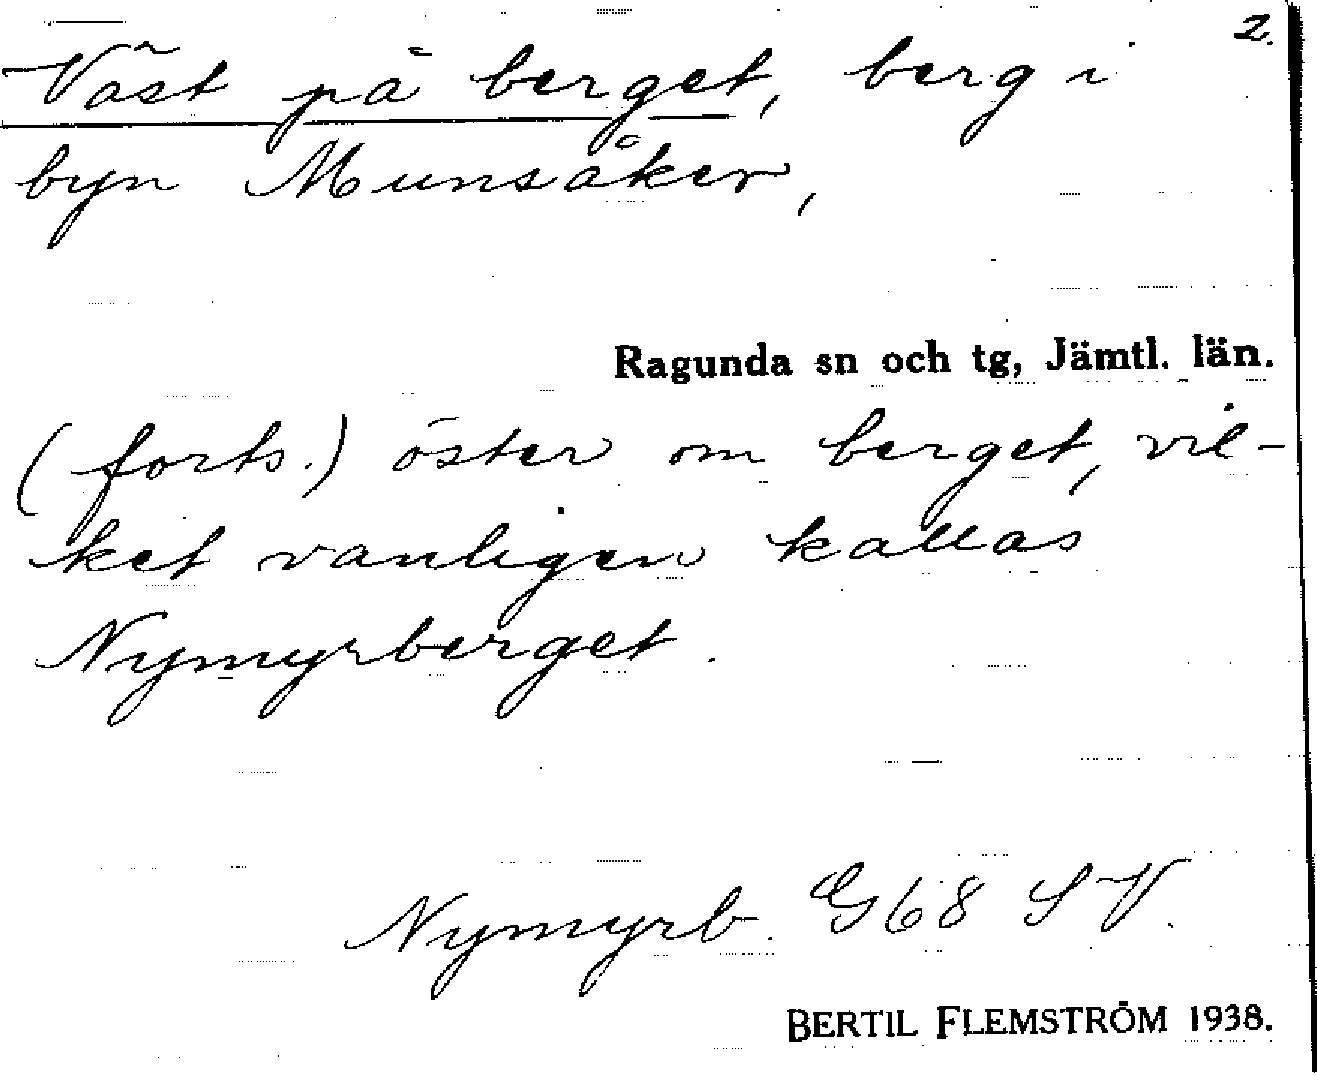 2.
Väst på berget, berg i
byn Munsåker,
Ragunda sn och tg, Jämtl. län.
(forts.) öster om berget, vil-
ket vanligen kallas
Nymyrberget.
Nymyrb. G68 SV.
BERTIL FLEMSTRÖM 1938.